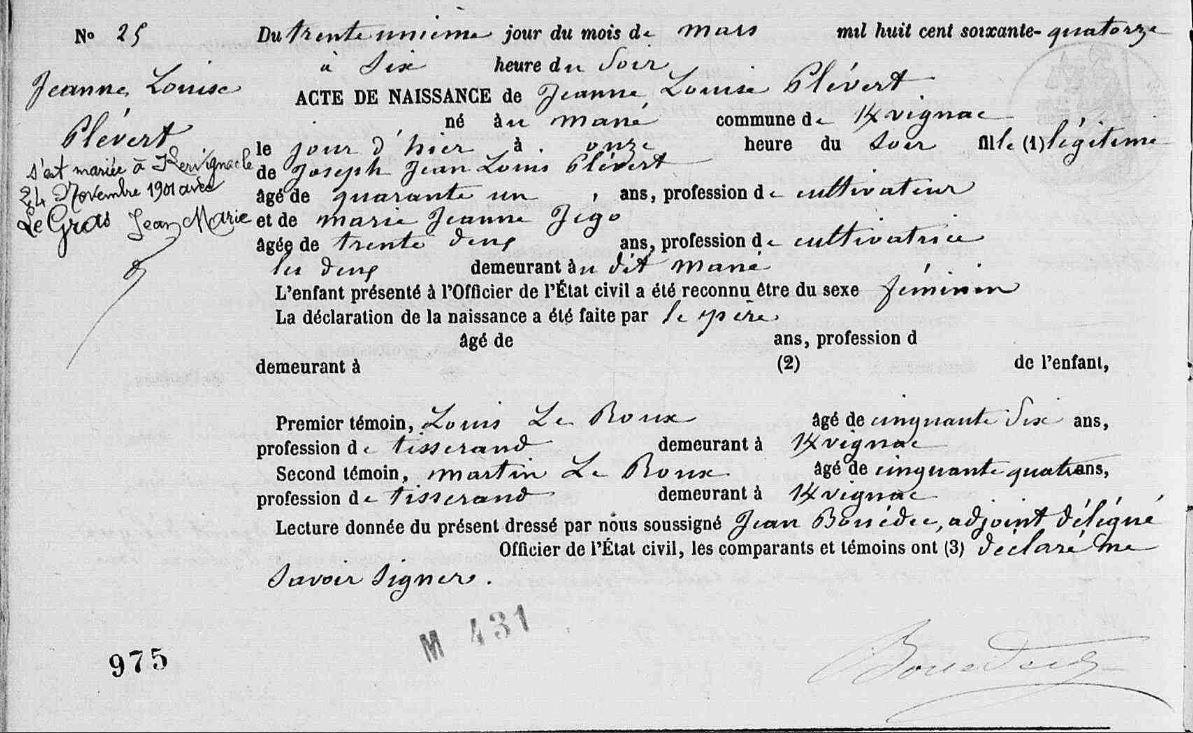 N° 25
Jeanne Louise
Plévert
s'est mariée à Kervignac le
24 Novembre 1901 avec
Le Gras Jean Marie
Du trente unième jour du mois de mars mil huit cent soixante-quatorze
à Six heure du Soir
ACTE DE NAISSANCE de Jeanne Louise Plévert
né au mané commune de Kvignac
le jour d'hier à onze heure du Soir fille (1) légitime
de Joseph Jean Louis Plévert
âgé de quarante un ans, profession de cultivateur
et de marie Jeanne Jégo
âgée de trente deux ans, profession de cultivatrice
les deux demeurant au dit mané
L'enfant présenté à l'Officier de l'État civil a été reconnu être du sexe féminin
La déclaration de la naissance a été faite par le père
âgé de ans, profession d
demeurant à (2) de l'enfant,
Premier témoin, Louis Le Roux âgé de cinquante Six ans,
profession de tisserand demeurant à Kvignac
Second témoin, martin Le Roux âgé de cinquante quatre ans,
profession de tisserand demeurant à Kvignac
Lecture donnée du présent dressé par nous soussigné Jean adjoint délégué
Officier de l'État civil, les comparants et témoins ont (3) déclaré ne
Savoir Signer.
M 431
975